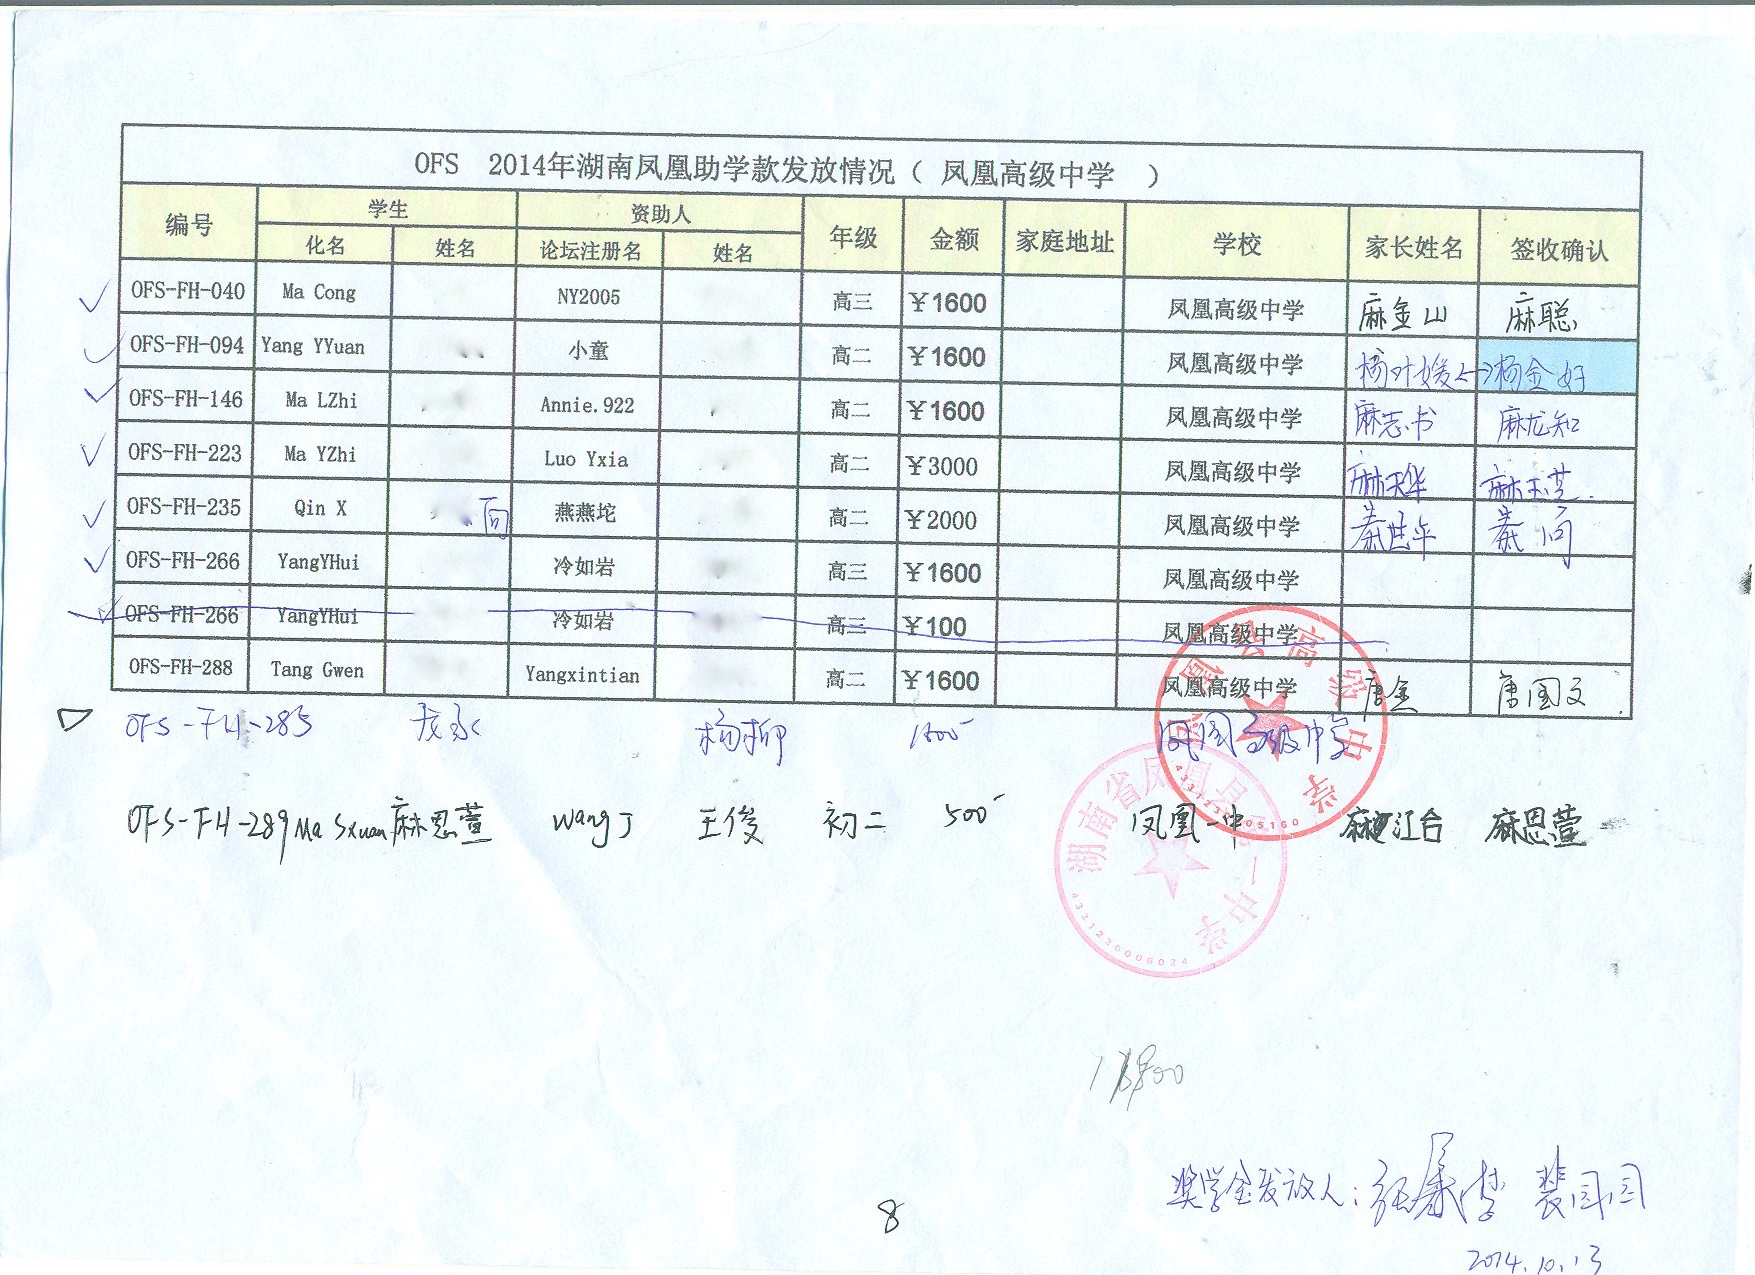 OFS 2014年湖南凤凰助学款发放情况（ 凤凰高级中学 ）
编号 学生 资助人 年级 金额 家庭地址 学校 家长姓名 签收确认
化名 姓名 论坛注册名 姓名
OFS-FH-040 Ma Cong NY2005 高三 ￥1600 凤凰高级中学 麻金山 麻聪
OFS-FH-094 Yang YYuan 小童 高二 ￥1600 凤凰高级中学 杨金好
OFS-FH-146 Ma LZhi Annie.922 高二 ￥1600 凤凰高级中学 麻志书 麻龙知
OFS-FH-223 Ma YZhi Luo Yxia 高二 ￥3000 凤凰高级中学
OFS-FH-235 Qin X 燕燕坨 高二 ￥2000 凤凰高级中学 秦
OFS-FH-266 YangYHui 冷如岩 高三 ￥1600 凤凰高级中学
OFS-FH-266 YangYHui 冷如岩 高三 ￥100 凤凰高级中学
OFS-FH-288 Tang Gwen Yangxintian 高二 ￥1600 凤凰高级中学 唐金 唐国文
OFS-FH-285 龙永 杨柳 凤凰高级中学
OFS-FH-289 Ma Sxuan 麻恩萱 Wang J 王俊 初二 500 凤凰一中 麻江台 麻恩萱
凤凰县高级中学
湖南省凤凰县第一中学
4331230006024
奖学金发放人：
8
2014.10.13